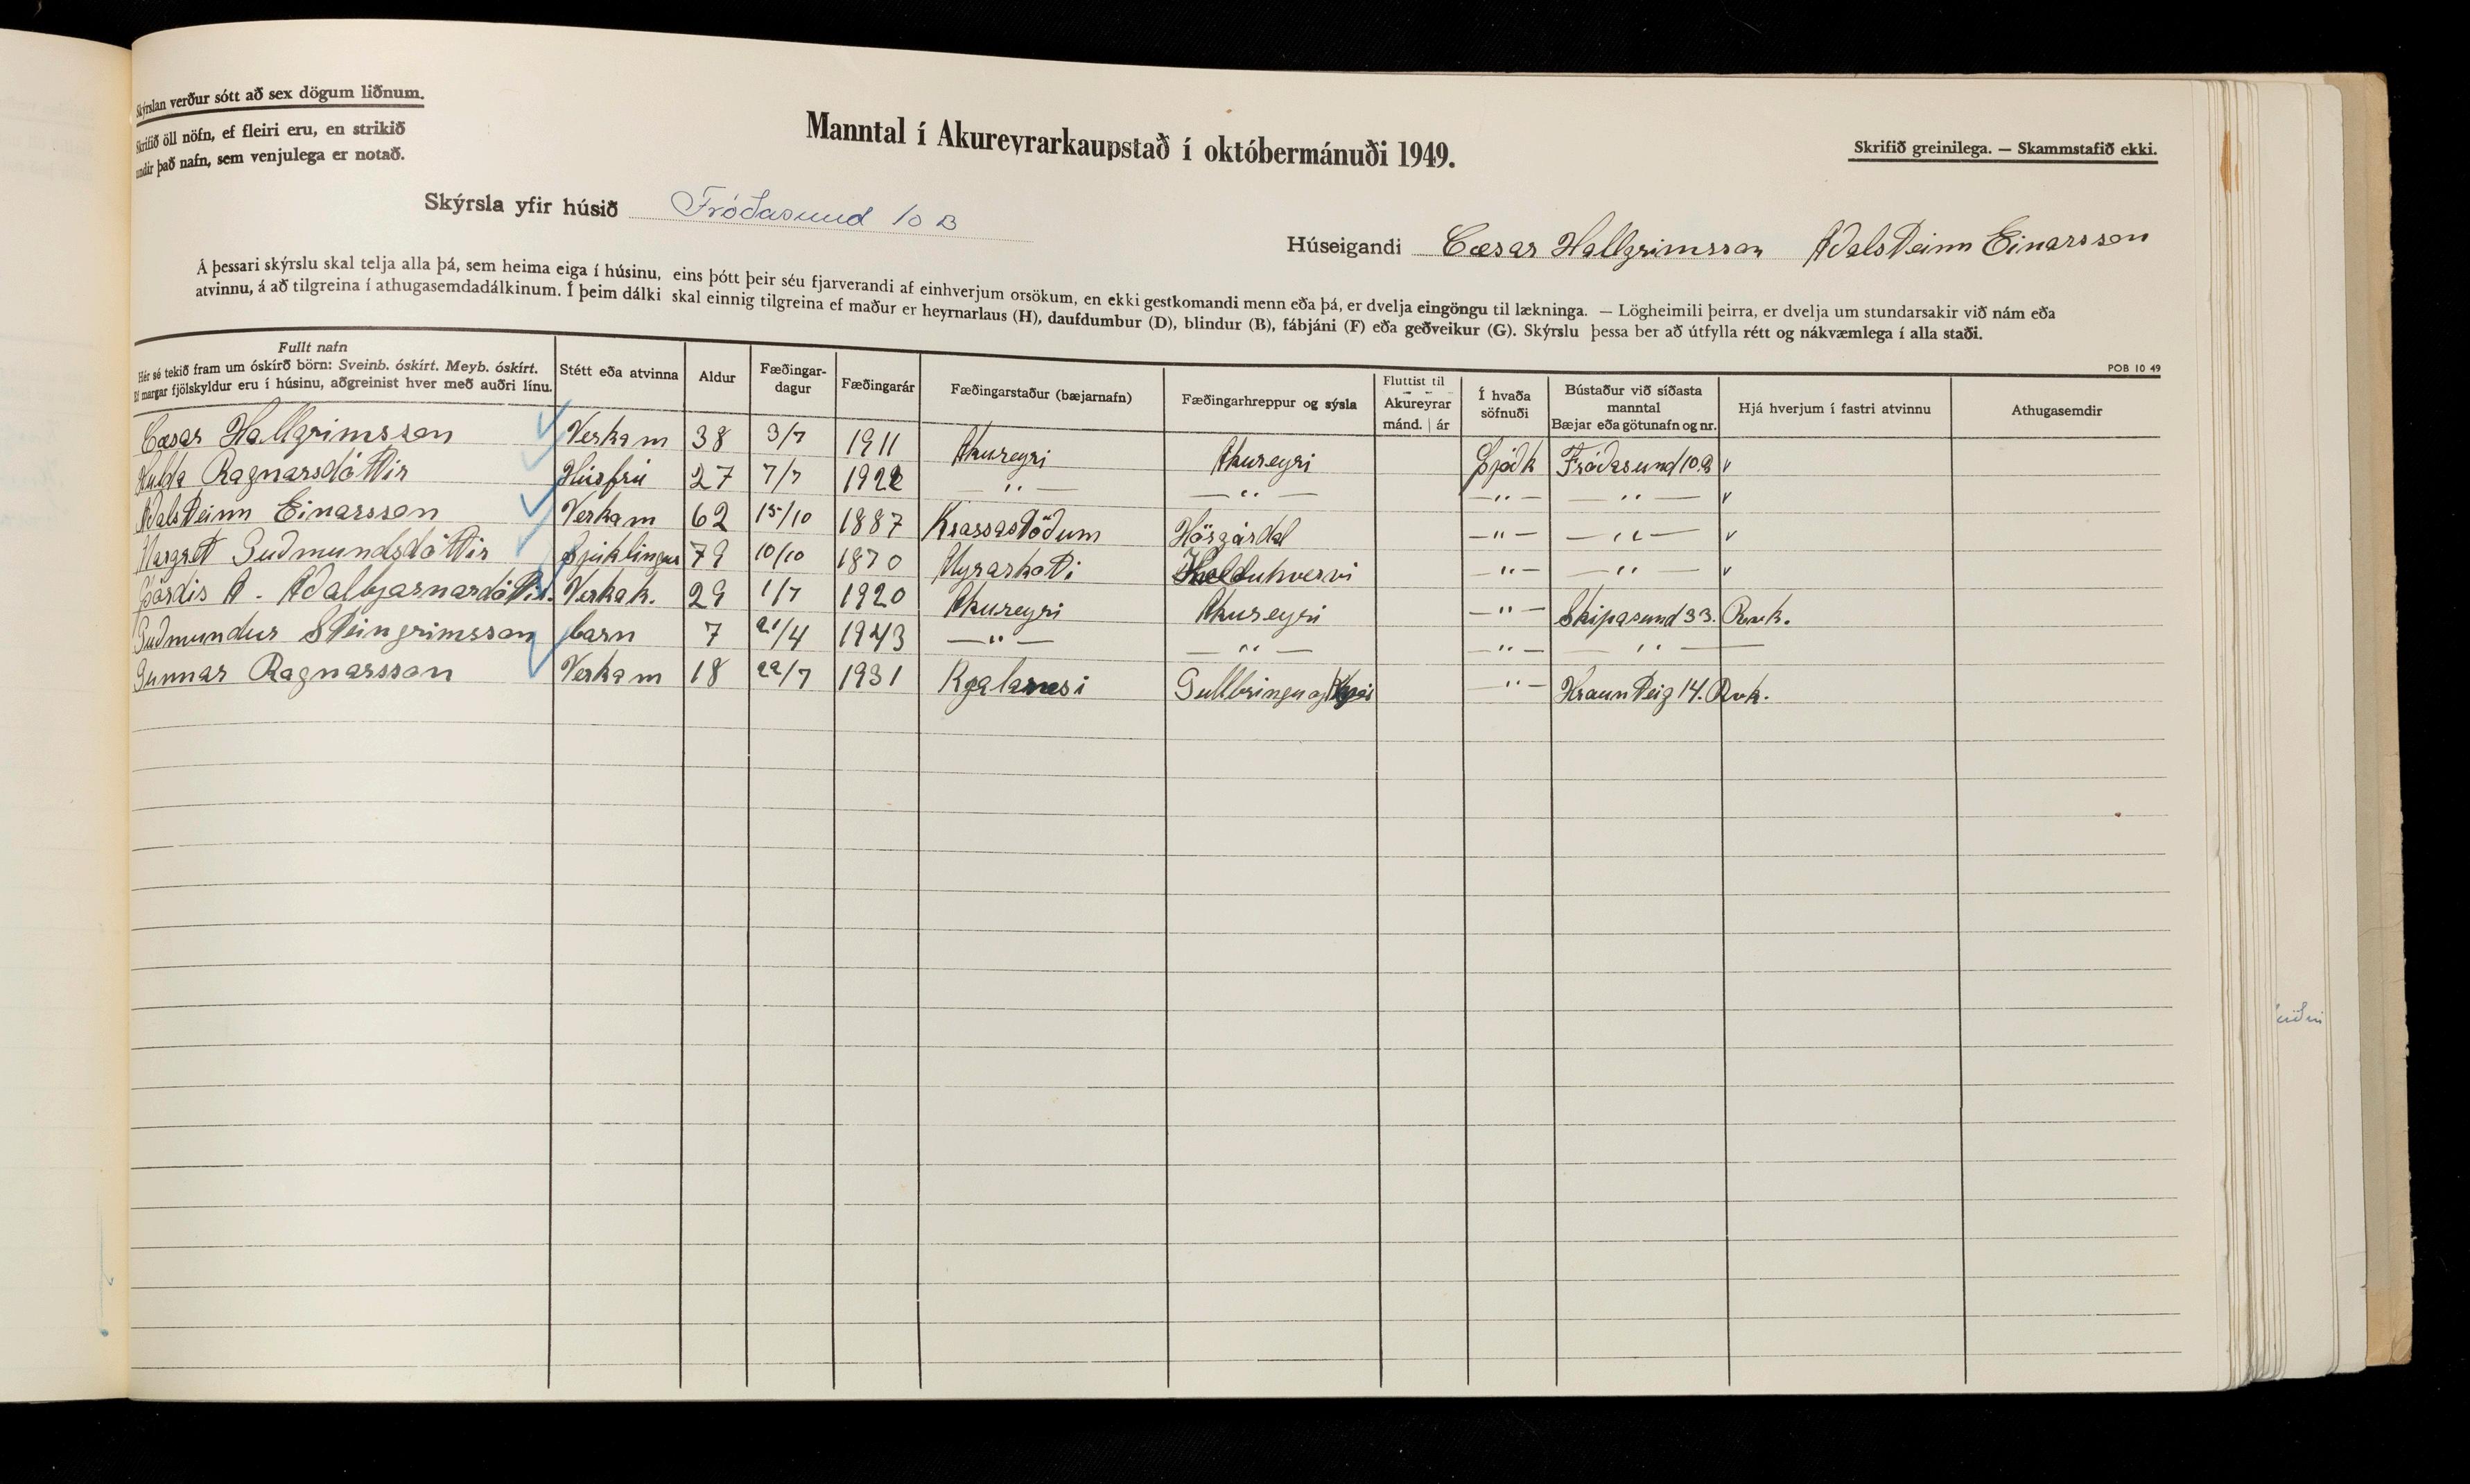 Skýrslan verður sótt að sex dögum liðnum.
Skrifið öll nöfn, ef fleiri eru, en strikið
undir það nafn, sem venjulega er notað.
Manntal í Akureyrarkaupstað í októbermánuði 1949.
Skrifið greinilega. — Skammstafið ekki.
Skýrsla yfir húsið Fróðasund 10 B
Húseigandi Cæsar Hallgrimsson Aðalsteinn Einarsson
Á þessari skýrslu skal telja alla þá, sem heima eiga í húsinu, eins þótt þeir séu fjarverandi af einhverjum orsökum, en ekki gestkomandi menn eða þá, er dvelja eingöngu til lækninga. — Lögheimili þeirra, er dvelja um stundarsakir við nám eða
atvinnu, á að tilgreina í athugasemdadálkinum. Í þeim dálki skal einnig tilgreina ef maður er heyrnarlaus (H), daufdumbur (D), blindur (B), fábjáni (F) eða geðveikur (G). Skýrslu þessa ber að útfylla rétt og nákvæmlega í alla staði.
POB 10 49
Fullt nafn
Hér sé tekið fram um óskírð börn: Sveinb. óskírt. Meyb. óskírt.
Ef margar fjölskyldur eru í húsinu, aðgreinist hver með auðri línu.
Stétt eða atvinna
Aldur
Fæðingar-
dagur
Fæðingarár
Fæðingarstaður (bæjarnafn)
Fæðingarhreppur og sýsla
Fluttist til
Akureyrar
mánd. | ár
Í hvaða
söfnuði
Bústaður við síðasta
manntal
Bæjar eða götunafn og nr.
Hjá hverjum í fastri atvinnu
Athugasemdir
Cæsar Hallgrimsson Verkam 38 3/7 1911 Akureyri Akureyri Þjóðk Fróðasund 10.B v
Hulda Ragnarsdóttir Húsfrú 27 7/7 1922 — " — — " — — " — — " — v
Aðalsteinn Einarsson Verkam 62 15/10 1887 Krassastöðum Hörgárdal — " — — " — v
Margret Guðmundsdóttir Sjúklingur 79 10/10 1870 Mýrarkoti Kelduhvervi — " — — " — v
Þórdis A. Aðalbjarnardóttir. Verkak. 29 1/7 1920 Akureyri Akureyri — " — Skipasund 33. Rvk.
Guðmundur Steingrimsson barn 7 21/4 1943 — " — — " — — " — — " —
Gunnar Ragnarsson Verkam 18 22/7 1931 Kjalarnesi Gullbringu og — " — Hraunteig 14. Rvk.